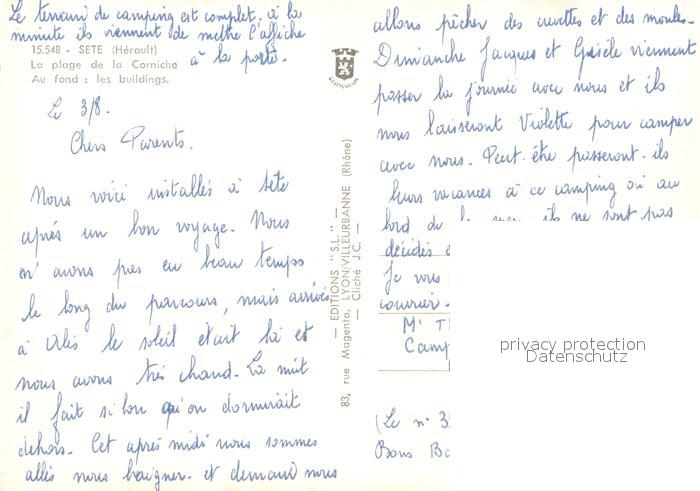 Le terrain de camping est complet, à la
minute ils viennent de mettre l'affiche
à la porte.
15.548 - SETE (Hérault)
La plage de la Corniche
Au fond : les buildings.
Le 3/8.
Chers Parents.
Nous voici installés à Sète
après un bon voyage. Nous
n'avons pas eu beau temps
le long du parcours, mais arrivés
à Alès le soleil était là et
nous avons très chaud. La nuit
il fait si bon qu'on dormirait
dehors. Cet après midi nous sommes
allés nous baigner. et demain nous
EDITIONS "S.L."
83, rue Magenta, LYON-VILLEURBANNE (Rhône)
Cliché J.C.
allons pêcher des crevettes et des moules.
Dimanche Jacques et Gisèle viennent
passer la journée avec nous et ils
nous laisseront Violette pour camper
avec nous. Peut-être passeront-ils
leurs vacances à ce camping ou au
bord de la mer, ils ne sont pas
décidés
Je vous
courrier.
Mr T
Camp
(Le n° 3
Bons Ba
privacy protection
Datenschutz